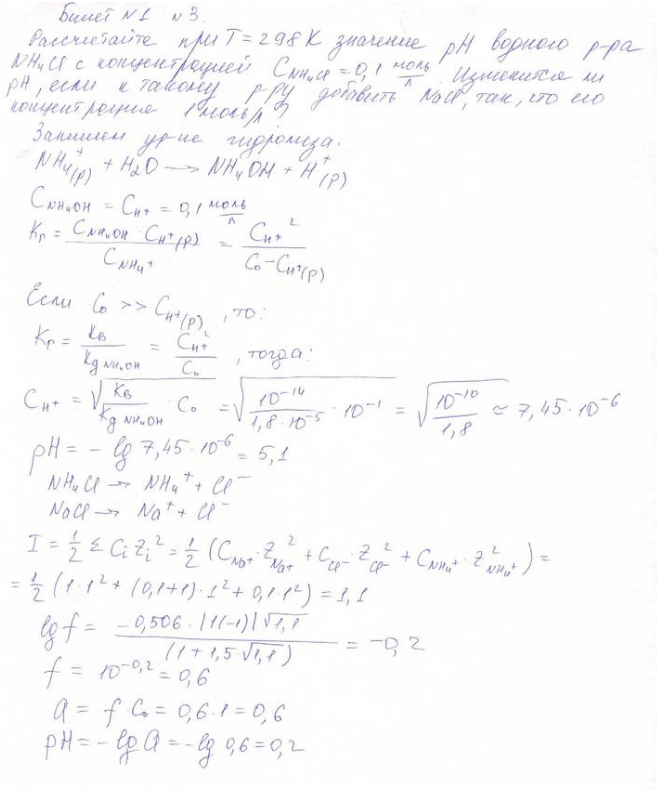 Билет №1 №3.
Рассчитайте при T=298K значение pH водного р-ра
NH₄Cl с концентрацией C_NH₄Cl = 0,1 моль/л. Изменится ли
pH, если к такому р-ру добавить NaCl, так, что его
концентрация 1 моль/л?
Запишем ур-ие гидролиза.
NH₄⁺(р) + H₂O → NH₄OH + H⁺(р)
C_NH₄OH = C_H⁺ = 0,1 моль/л
Kг = (C_NH₄OH · C_H⁺(р)) / C_NH₄⁺ = C_H⁺² / (C₀ - C_H⁺(р))
Если C₀ >> C_H⁺(р), то:
Kг = Kв / Kд NH₄OH = C_H⁺² / C₀, тогда:
C_H⁺ = √(Kв / Kд NH₄OH · C₀) = √(10⁻¹⁴ / 1,8·10⁻⁵ · 10⁻¹) = √(10⁻¹⁰ / 1,8) ≈ 7,45·10⁻⁶
pH = - lg 7,45·10⁻⁶ = 5,1
NH₄Cl → NH₄⁺ + Cl⁻
NaCl → Na⁺ + Cl⁻
I = 1/2 Σ Cᵢ Zᵢ² = 1/2 (C_Na⁺ · Z²_Na⁺ + C_Cl⁻ · Z²_Cl⁻ + C_NH₄⁺ · Z²_NH₄⁺) =
= 1/2 (1·1² + (0,1+1)·1² + 0,1·1²) = 1,1
lg f = -0,506·|1(-1)|√1,1 / (1 + 1,5·√1,1) = -0,2
f = 10⁻⁰,² = 0,6
a = f·C₀ = 0,6·1 = 0,6
pH = - lg a = - lg 0,6 = 0,2